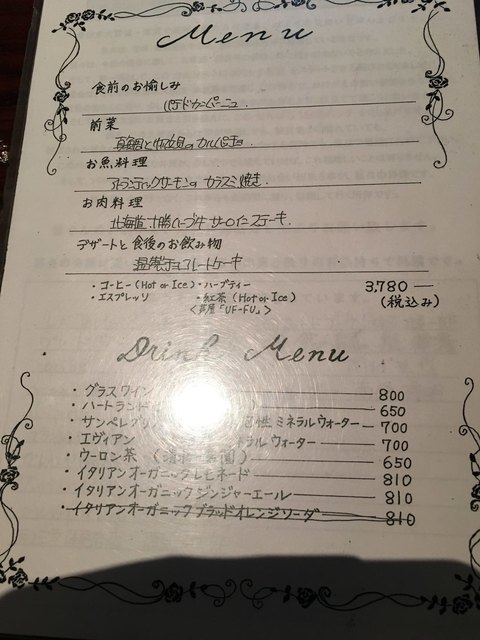 Menu
食前のお愉しみ
パテドカンパーニュ.
前菜
真鯛と帆立貝のカルパッチョ.
お魚料理
アトランティックサーモンの カラスミ焼き.
お肉料理
北海道十勝ハーブ牛 サーロインステーキ.
デザートと 食後のお飲み物
温製チョコレートケーキ
・コーヒー(Hot or Ice)・ハーブティー
・エスプレッソ ・紅茶(Hot or Ice)
<芦屋「UF-FU」>
3,780 —
(税込み)
Drink Menu
・グラスワイン 800
・ハートランド 650
・サンペレグリ 性ミネラルウォーター 700
・エヴィアン ネラルウォーター 700
・ウーロン茶 ( 園) 650
・イタリアンオーガニックレモネード 810
・イタリアンオーガニックジンジャーエール 810
・イタリアンオーガニックブラッドオレンジソーダ 810